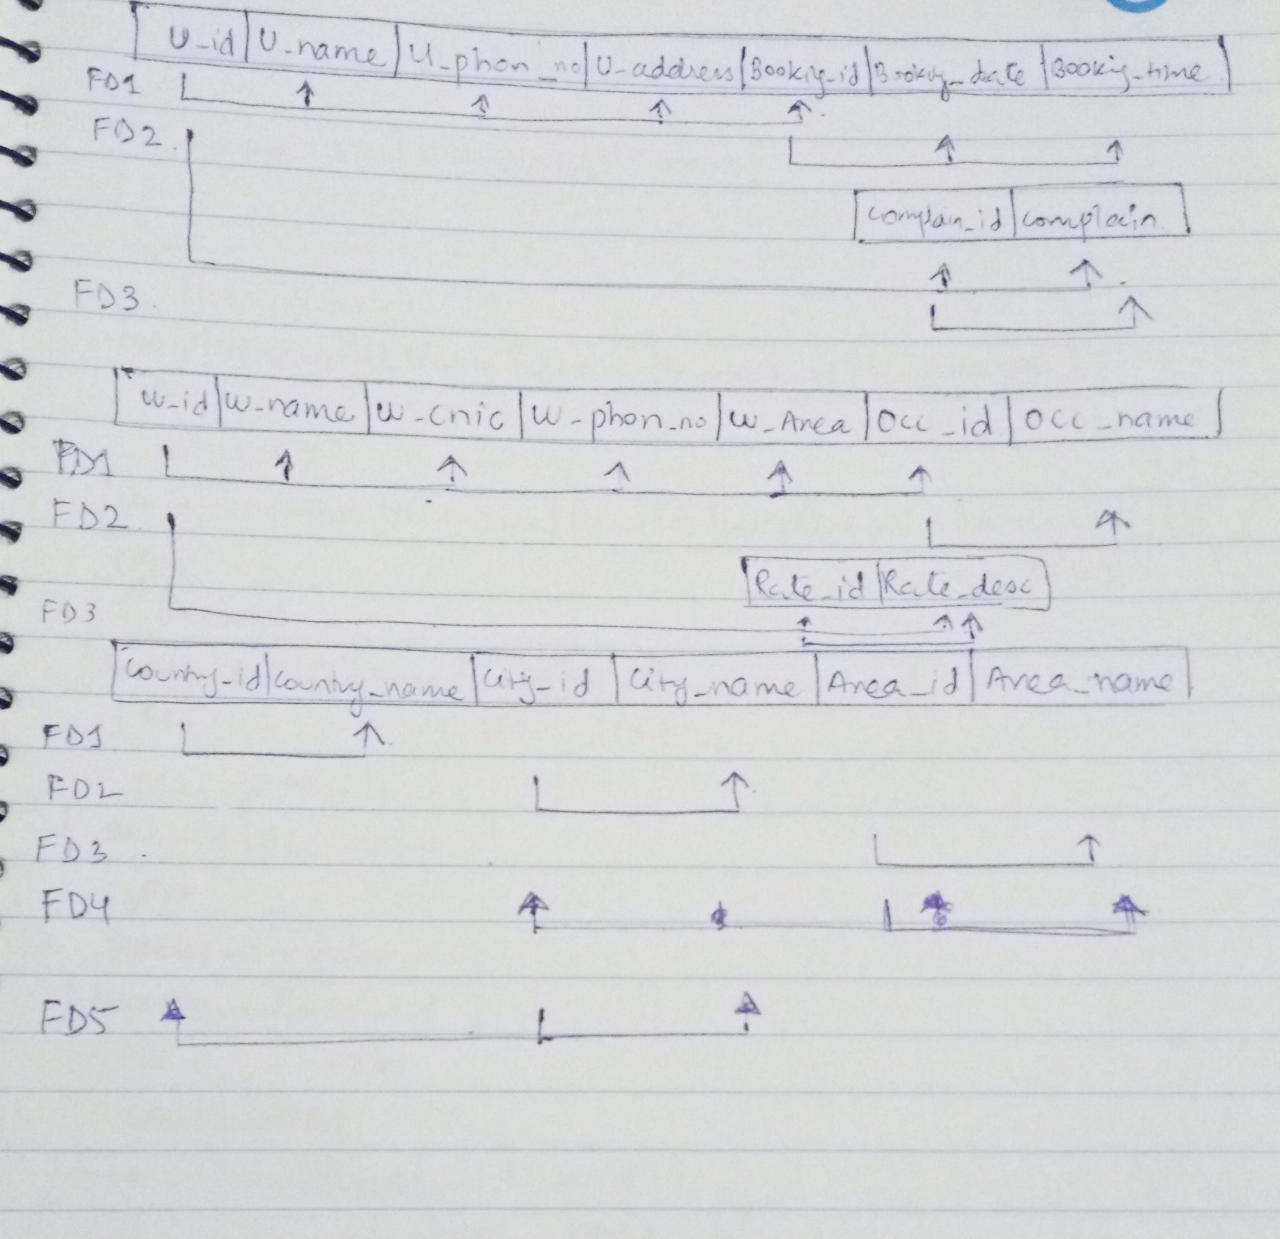 U_id U_name U_phon_no U_address Bookig_id Bookig_date Bookig_time
FD1
FD2
complain_id complain
FD3
W_id W_name W_cnic W_phon_no W_Area Occ_id Occ_name
FD1
FD2
Rate_id Rate_desc
FD3
Country_id Country_name City_id City_name Area_id Area_name
FD1
FD2
FD3
FD4
FD5